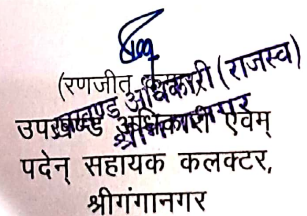 (रणजीत
उपखण्ड अधिकारी (राजस्व)
श्रीगंगानगर
उपखण्ड अधिकारी एवम्
पदेन् सहायक कलक्टर,
श्रीगंगानगर